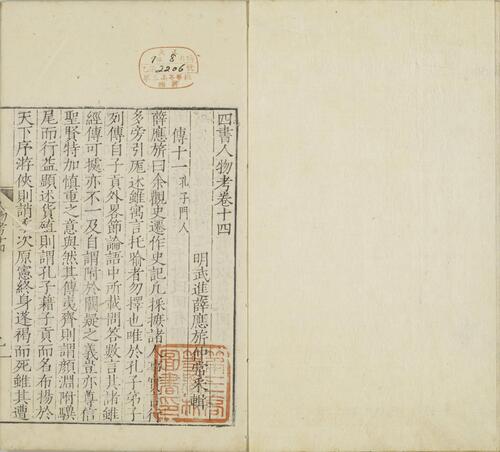 四書人物考卷十四
明武進薛應旂仲常采輯
傳十一 孔子門人
薛應旂曰余觀史遷作史記凡採摭諸人
多旁引歷述雖寓言托喻者勿擇也唯於孔子弟子
列傳自子貢外畧節論語中所載問答數言其諸雖
經傳可據亦不一及自謂附於闕疑之義豈亦尊信
聖賢特加慎重之意與然其傳夷齊則謂顏淵附驥
尾而行益顯述貨殖則謂孔子藉子貢而名布揚於
天下序游俠則謂 次原憲終身蓬褐而死雖其遭
2206